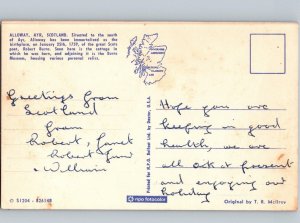 ALLOWAY, AYR, SCOTLAND. Situated to the south
of Ayr, Alloway has been immortalised as the
birthplace, on January 25th, 1759, of the great Scots
poet, Robert Burns. Seen here is the cottage in
which he was born, and adjoining it is the Burns
Museum, housing various personal relics.
Greetings from
Scotland
from
Robert, Janet
Robert Junr
William
Hope you are
keeping in good
health, we are
all at present
and enjoying our
holiday
Printed for N.P.O. Belfast Ltd. by Dexter, U.S.A.
© 51204 - 82614B
npo fotocolor
Original by T. R. McIlroy